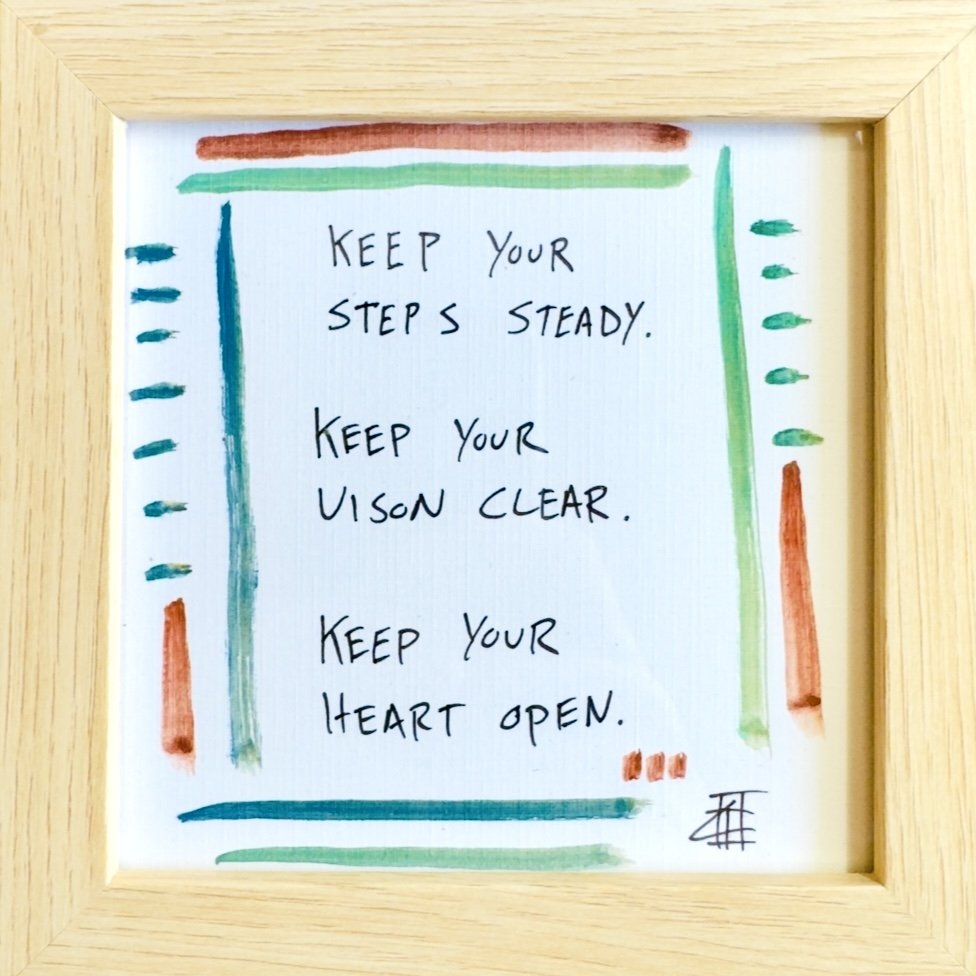 KEEP YOUR
STEPS STEADY.
KEEP YOUR
VISON CLEAR.
KEEP YOUR
HEART OPEN.